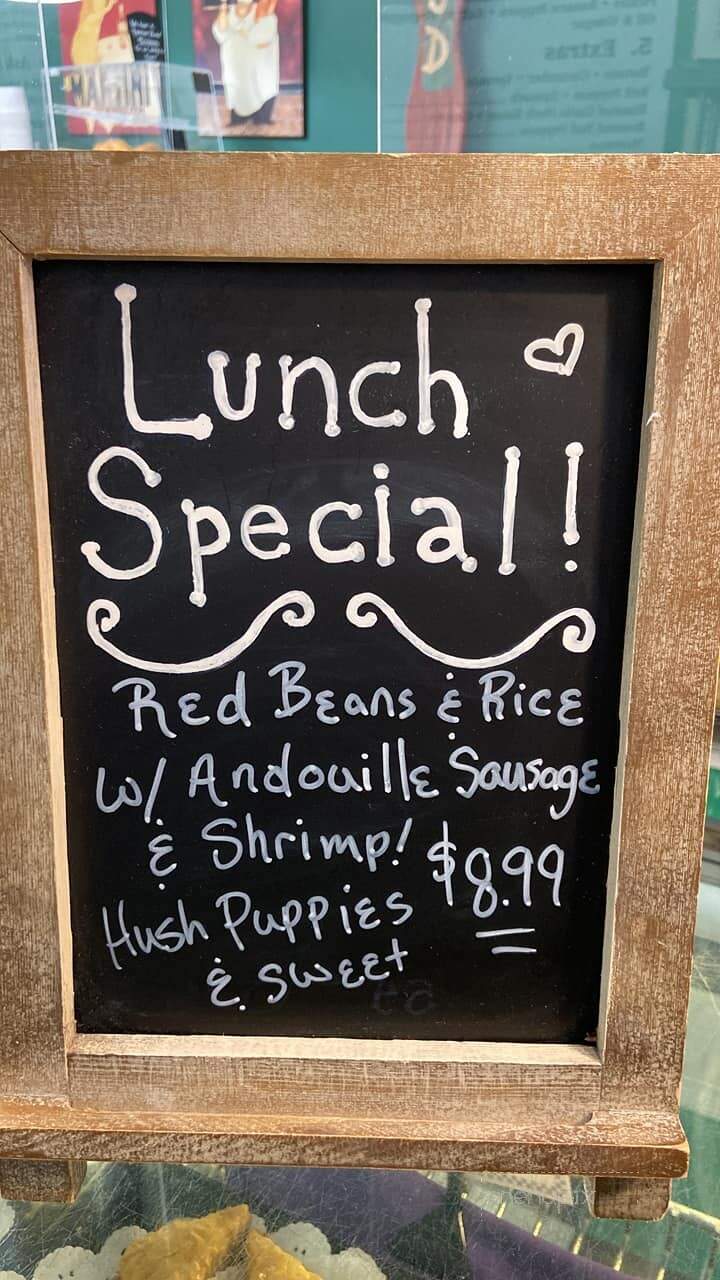 5. Extras
Lunch
Special!
Red Beans & Rice
w/ Andouille Sausage
& Shrimp!
$8.99
Hush Puppies
& sweet